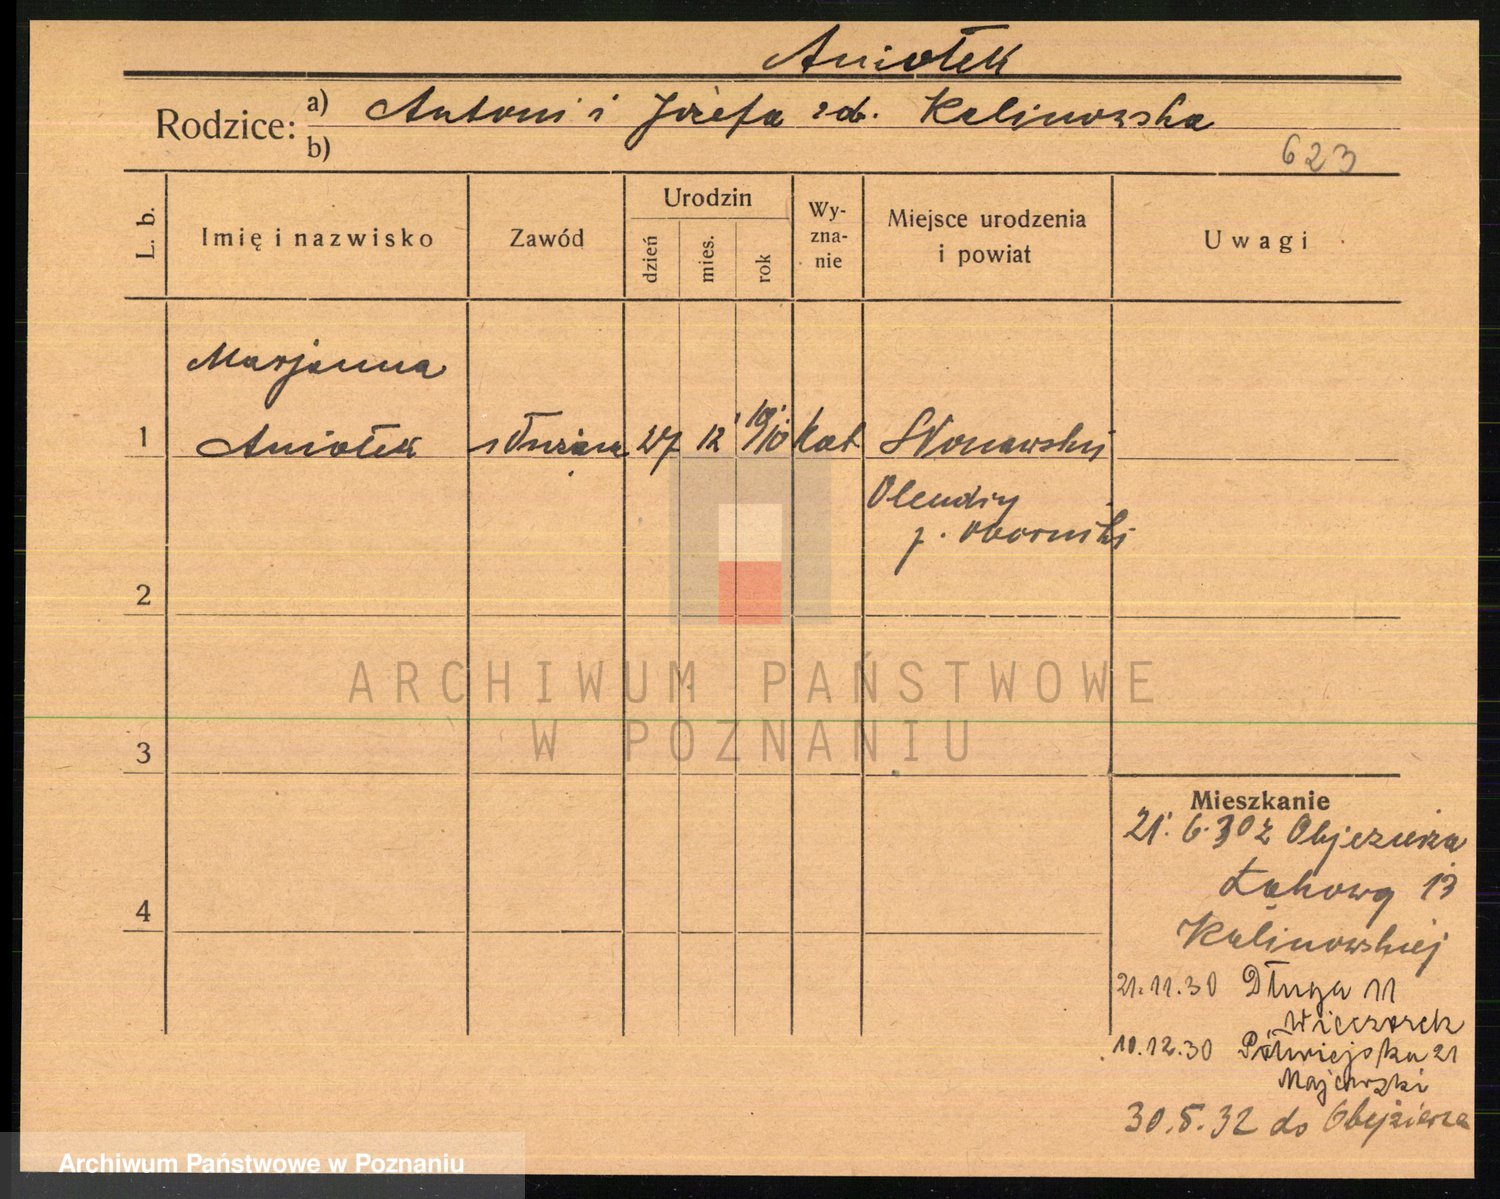 Aniołek
Rodzice: a) Antoni i Józefa zd. Kalinowska
b)
623
L. b.
Imię i nazwisko
Zawód
Urodzin
dzień
mies.
rok
Wy-
zna-
nie
Miejsce urodzenia
i powiat
Uwagi
Marjanna
1 Aniołek służąca 27 12 1910 kat Słonawskij
Olendry
p. Oborniki
2
ARCHIWUM PAŃSTWOWE
W POZNANIU
3
4
Mieszkanie
21. 6. 30 z Objezierza
Łąkowa 13
Kalinowskiej
21.11.30 Długa 11
Wieczorek
10.12.30 Półwiejska 21
Majewski
30.5.32 do Objezierza
Archiwum Państwowe w Poznaniu